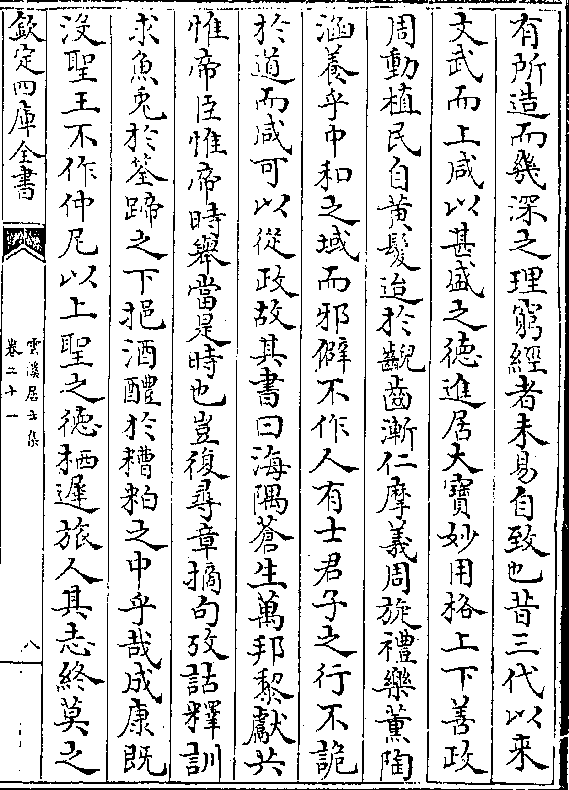 有所造而幾深之理窮經者未易自致也昔三代以来
文武而上咸以甚盛之德進居大寳妙用格上下善政
周動植民自黄髮迨於齯齒漸仁摩義周旋禮樂薫陶
涵養乎中和之域而邪僻不作人有士君子之行不詭
於道而咸可以從政故其書曰海隅蒼生萬邦黎獻共
惟帝臣惟帝時舉當是時也豈復尋章摘句攷詁釋訓
求魚兎於筌蹄之下挹酒醴於糟粕之中乎哉成康既
沒聖王不作仲尼以上聖之德栖遲旅人其志終莫之
欽定四庫全書
雲溪居士集
卷二十一
八